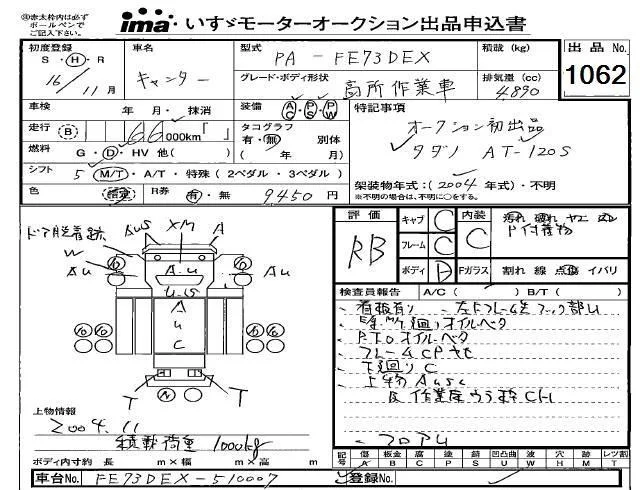 ㊟赤太枠内は必ず
ボールペンで
ご記入下さい。
ima いすゞモーターオークション出品申込書
初度登録
S・H・R
16/11月
車名
キャンター
型式
PA - FE73DEX
グレード・ボディ形状
高所作業車
積載 (kg)
排気量 (cc)
4890
出品 No.
1062
車検
年 月・抹消
装備
AC・PS・PW
特記事項
オークション初出品
タダノ AT-120S
走行
B
66,000km「 」
タコグラフ
有・無 別体
( 年 月)
燃料
G・D・HV 他( )
シフト
5 M/T・A/T・特殊 (2ペダル・3ペダル)
架装物年式:(2004年式)・不明
※不明の場合は、不明に○をする。
色
R券
有・無 9450 円
ドア脱着跡
AUS XM A
W
Au
A-U
Au
A
U
C
T
T
N
上物情報
2004.11
積載荷重 1000kg
ボディ内寸約 長 m×幅 m×高 m
評価
RB
キャブ C
フレーム C
ボディ D
内装
C
Fガラス 割れ 線 点傷 イバリ
検査員報告 A/C ( ) B/T ( )
、看板有り 、左Fフレーム先フック部U
、PTOオイルベタ
、フレームCPサビ
、下廻りC
、上物AUSC
、フロアU
記号
傷 A
板金 B
腐 C
塗 P
錆 S
凹凸曲 U
波 W
穴 H
跡 M
レツ割 T
車台No. FE73DEX-510007
登録No.